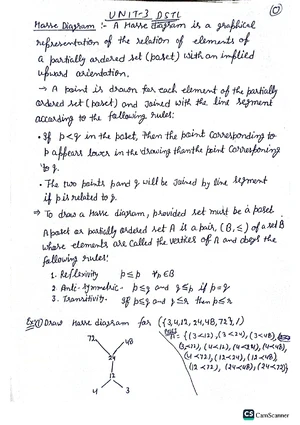 UNIT-3 DSTL
Hasse Diagram :- A Hasse diagram is a graphical
representation of the relation of elements of
a partially ordered set (poset) with an implied
upward orientation.
→ A point is drawn for each element of the partially
ordered set (poset) and joined with the line segment
according to the following rules:
• If p < q in the poset, then the point corresponding to
p appears lower in the drawing than the point corresponding
to q.
• The two points p and q will be joined by line segment
if p is related to q.
⇒ To draw a Hasse diagram, provided set must be a poset.
A poset or partially ordered set A is a pair, (B, ≤) of a set B
whose elements are called the vertices of A and obeys the
following rules:
1. Reflexivity p ≤ p ∀p∈B
2. Anti-Symmetric- p ≤ q and q ≤ p if p = q
3. Transitivity. If p ≤ q and q ≤ r then p ≤ r
Draw Hasse diagram for ({3,4,12,24,48,72}, /)
{(3<12), (3<24), (3<48),
(3<72), (4<12), (4<24), (4<48),
(4<72), (12<24), (12<48),
(12<72), (24<48) (24<72)}
72 48
24
12
4 3
CS CamScanner